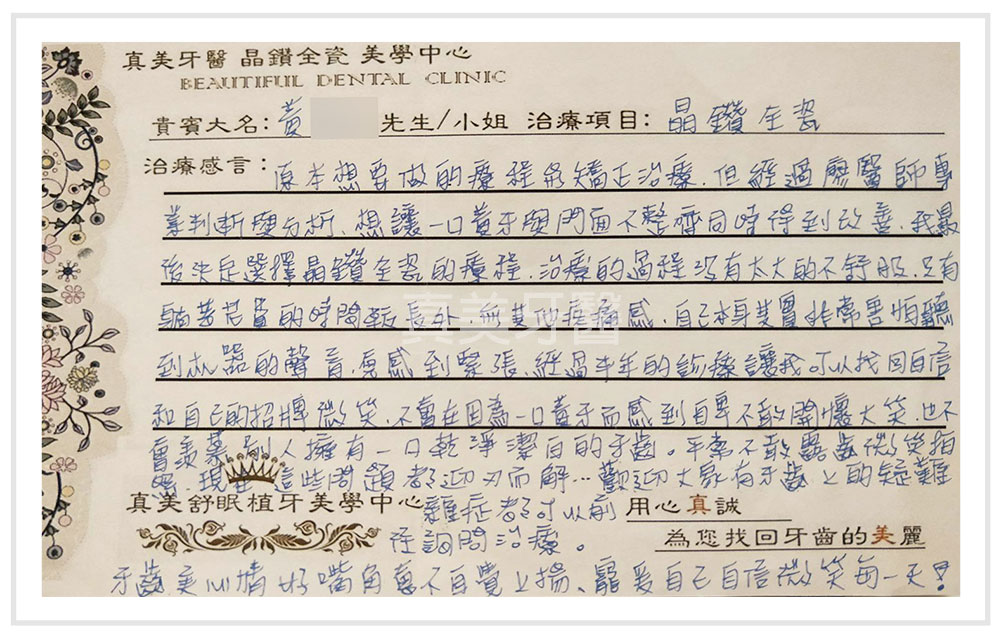 真美牙醫 晶鑽全瓷 美學中心
BEAUTIFUL DENTAL CLINIC
貴賓大名:黃 先生/小姐 治療項目:晶鑽全瓷
治療感言:原本想要做的療程為矯正治療,但經過廖醫師專
業判斷與分析,想讓一口黃牙與門面不整齊同時得到改善,我最
後決定選擇晶鑽全瓷的療程,治療的過程沒有太大的不舒服,只有
躺著 的時間較長外,無其他疼痛感,自己本身其實非常害怕聽
到 器的聲音,更感到緊張,經過半年的診療讓我可以找回自信
和自己的招牌微笑,不會在因為一口黃牙而感到自卑不敢開懷大笑,也不
會羨慕別人擁有一口乾淨潔白的牙齒。平常不敢露齒微笑拍
照,現在這些問題都迎刃而解...歡迎大家有牙齒上的疑難
真美舒眠植牙美學中心 雜症都可以前 用心真誠
往詢問治療。 為您找回牙齒的美麗
牙齒美心情好嘴角會不自覺上揚、寵愛自己自信微笑每一天!
真美牙醫